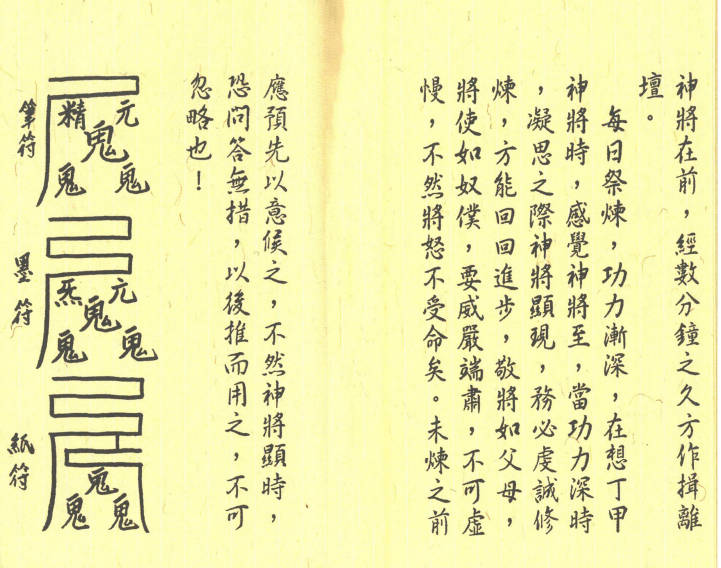 神將在前，經數分鐘之久方作揖離
壇。
每日祭煉，功力漸深，在想丁甲
神將時，感覺神將至，當功力深時
，凝思之際神將顯現，務必虔誠修
煉，方能回回進步，敬將如父母，
將使如奴僕，要威嚴端肅，不可虛
慢，不然將怒不受命矣。未煉之前
應預先以意候之，不然神將顯時，
恐問答無措，以後推而用之，不可
忽略也！
元
精鬼
鬼鬼
筆符
元
炁鬼
鬼鬼
墨符
鬼
鬼鬼
紙符